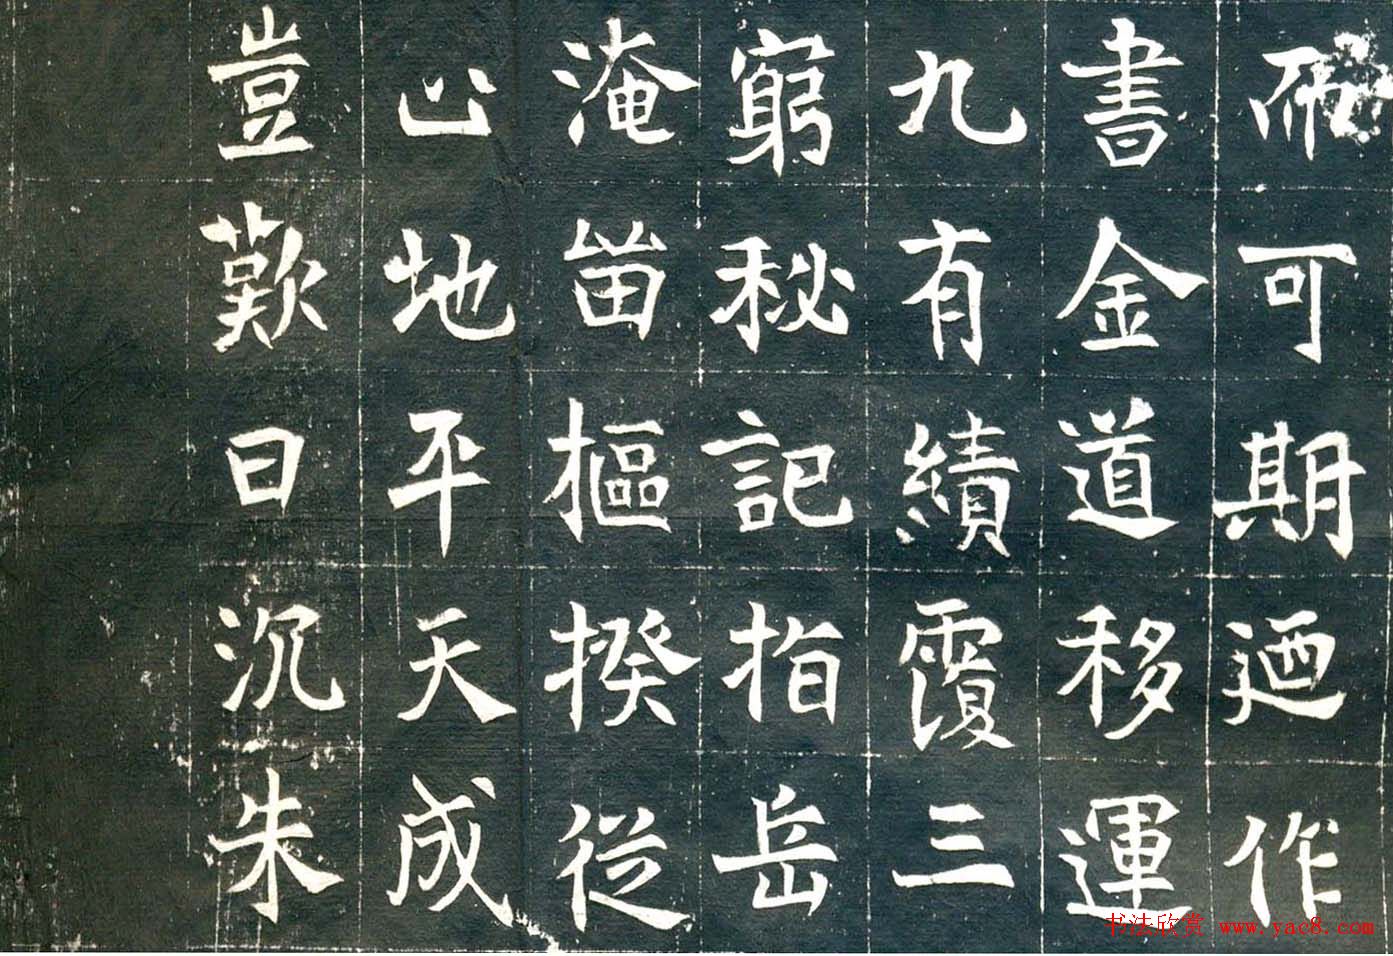 可期迺作
書金道移運
九有績覆三
窮秘記指岳
淹留樞揆從
地平天成
豈歎日沉朱
书法欣赏 www.yac8.com